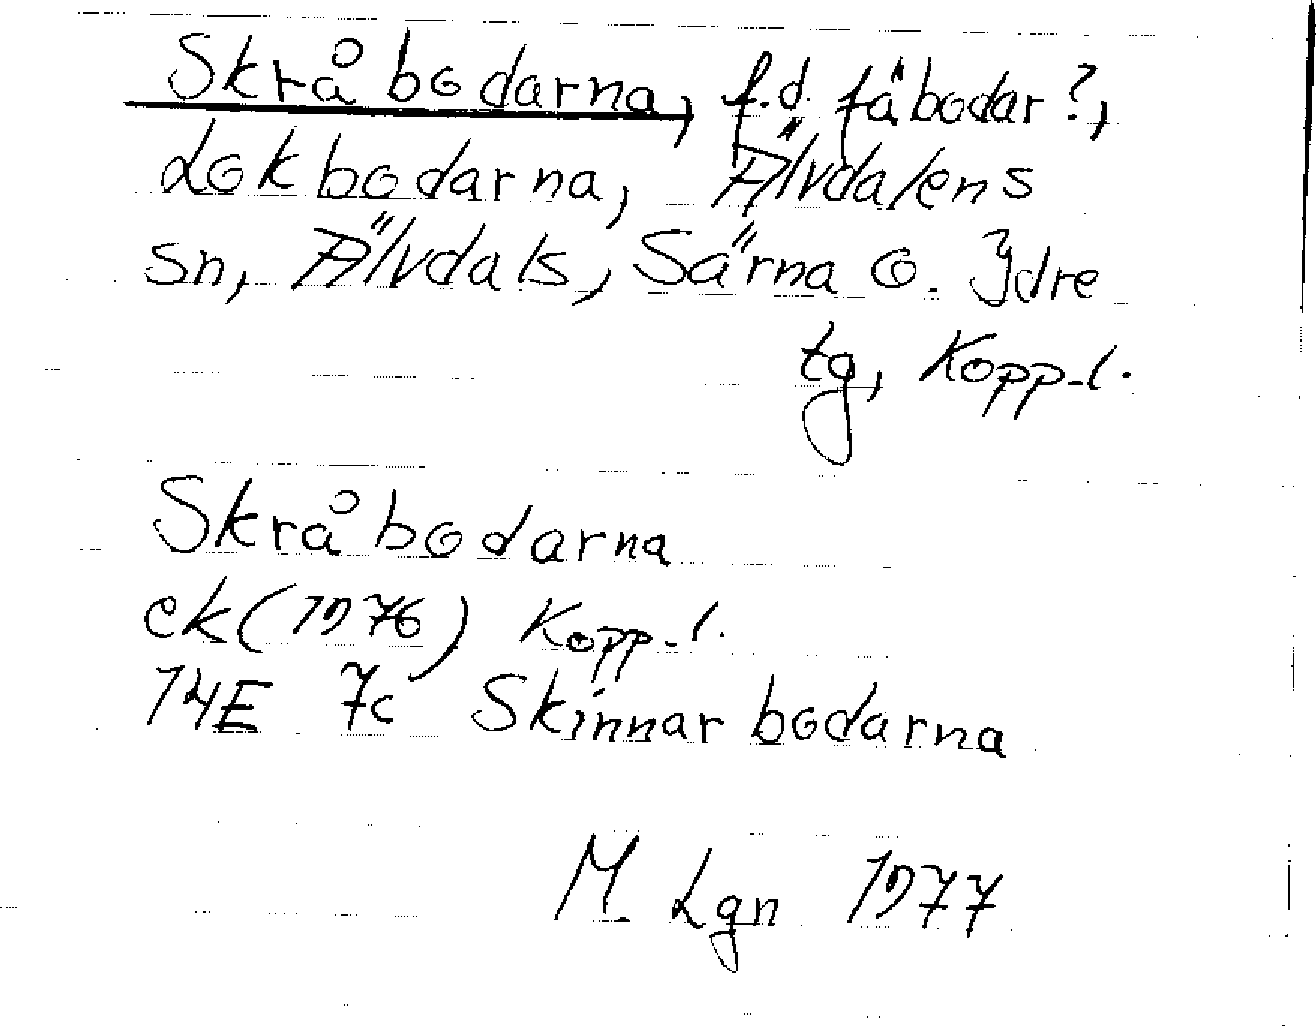 Skråbodarna, f.d. fäbodar?,
Lokbodarna, Älvdalens
sn, Älvdals, Särna o. Idre
tg, Kopp-l.
Skråbodarna
ek (1976) Kopp-l.
14E 7c Skinnarbodarna
M Lgn 1977